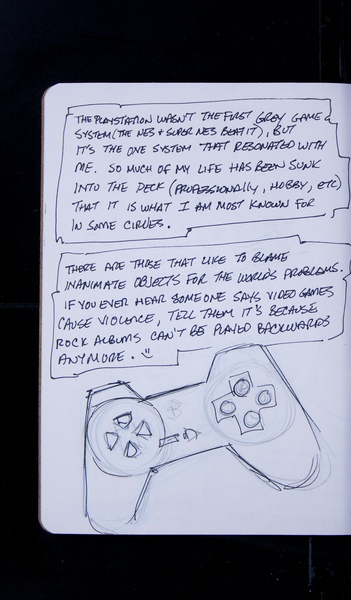 THE PLAYSTATION WASN'T THE FIRST GREY GAME
SYSTEM (THE NES + SUPER NES BEAT IT), BUT
IT'S THE ONE SYSTEM THAT RESONATED WITH
ME. SO MUCH OF MY LIFE HAS BEEN SUNK
INTO THE DECK (PROFESSIONALLY, HOBBY, ETC)
THAT IT IS WHAT I AM MOST KNOWN FOR
IN SOME CIRCLES.
THERE ARE THOSE THAT LIKE TO BLAME
INANIMATE OBJECTS FOR THE WORLD'S PROBLEMS.
IF YOU EVER HEAR SOMEONE SAYS VIDEO GAMES
CAUSE VIOLENCE, TELL THEM IT'S BECAUSE
ROCK ALBUMS CAN'T BE PLAYED BACKWARDS
ANYMORE. :)